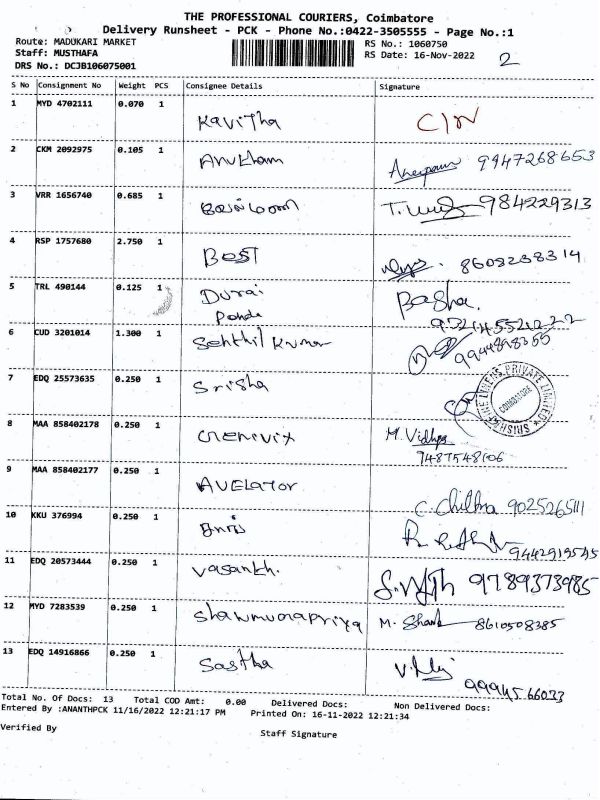 THE PROFESSIONAL COURIERS, Coimbatore
Delivery Runsheet - PCK - Phone No.:0422-3505555 - Page No.:1
Route: MADUKARI MARKET RS No.: 1060750
Staff: MUSTHAFA RS Date: 16-Nov-2022 2
DRS No.: DCJB106075001
S No Consignment No Weight PCS Consignee Details Signature
1 MYD 4702111 0.070 1 Kavitha
2 CKM 2092975 0.105 1 9947268653
3 VRR 1656740 0.685 1 984229313
4 RSP 1757680 2.750 1 BEST 8608238314
5 TRL 490144 0.125 1 Durai Basha.
6 CUD 3201014 1.300 1 Senthil Kumar
7 EDQ 25573635 0.250 1 Srisha
COIMBATORE
8 MAA 858402178 0.250 1 M. Vidhya
9 MAA 858402177 0.250 1 AVELATOR C. Chithra 9025265111
10 KKU 376994 0.250 1 9442919545
11 EDQ 20573444 0.250 1 Vasankh. 9789373985
12 MYD 7283539 0.250 1 8610508385
13 EDQ 14916866 0.250 1 Sastha
Total No. Of Docs: 13 Total COD Amt: 0.00 Delivered Docs: Non Delivered Docs:
Entered By :ANANTHPCK 11/16/2022 12:21:17 PM Printed On: 16-11-2022 12:21:34
Verified By Staff Signature